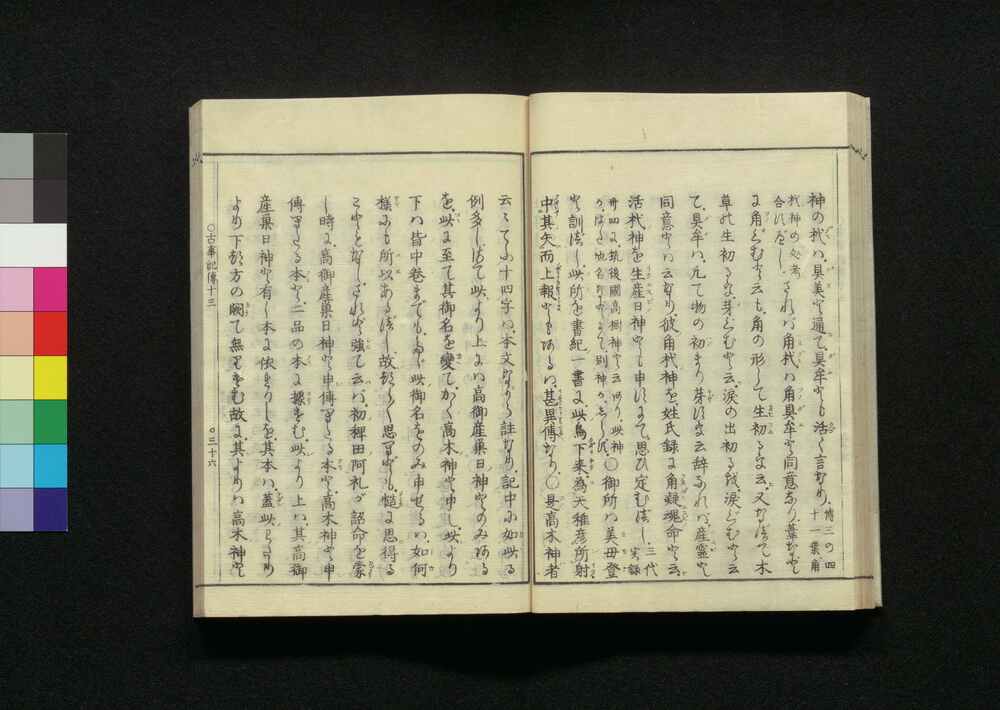 神の杙は、具美と通て、具牟とも活く言なり、傳三の四十一葉角
杙神の処考合すべし、されば角杙は角具牟と同意なり、葦などに
角ぐむと云も、角の形して生初るを云、又なべて木
草の生初るを芽ぐむと云、涙の出初るを涙ぐむと云
て、具牟は、凡て物の初まり芽すを云辞なれば、産霊と
同意とは云なり、彼角杙神を、姓氏録に角凝魂命と云、
活杙神を生産日神とも申すにて思ひ定むべし、三代実録
卅四に筑後國高樹神と云あり、此神か、はた地名などにて、別神か、しらず、○御所は美母登
と訓べし、此所を書紀一書に此鳥下来、為天稚彦所射
中其矢而上報ともあるは、甚異傳なり、○是高木神者
云々てふ十四字は、本文ながら註なり、記中に如此る
例多し、さて此より上には高御産巣日神とのみある
を、此に至て其御名を變て、かく高木神と申し、此より
下は皆中巻までも、たゞ此御名をのみ申せるは、如何
樣にも所以あるべし、故つら〳〵思ふに、慥に思得る
ことなし、されど強て云はゞ、初稗田阿礼が詔命を蒙
し時に、高御産巣日神と申傳へたる本と、高木神と申
傳へたる本と、二品の本に據けむ、此より上は其高御
産巣日神と有し本に依れりしを、其本は、蓋此らより
より下つ方の闕て無りけむ故に、其よりは高木神と
○古事記傳十三
○三十六